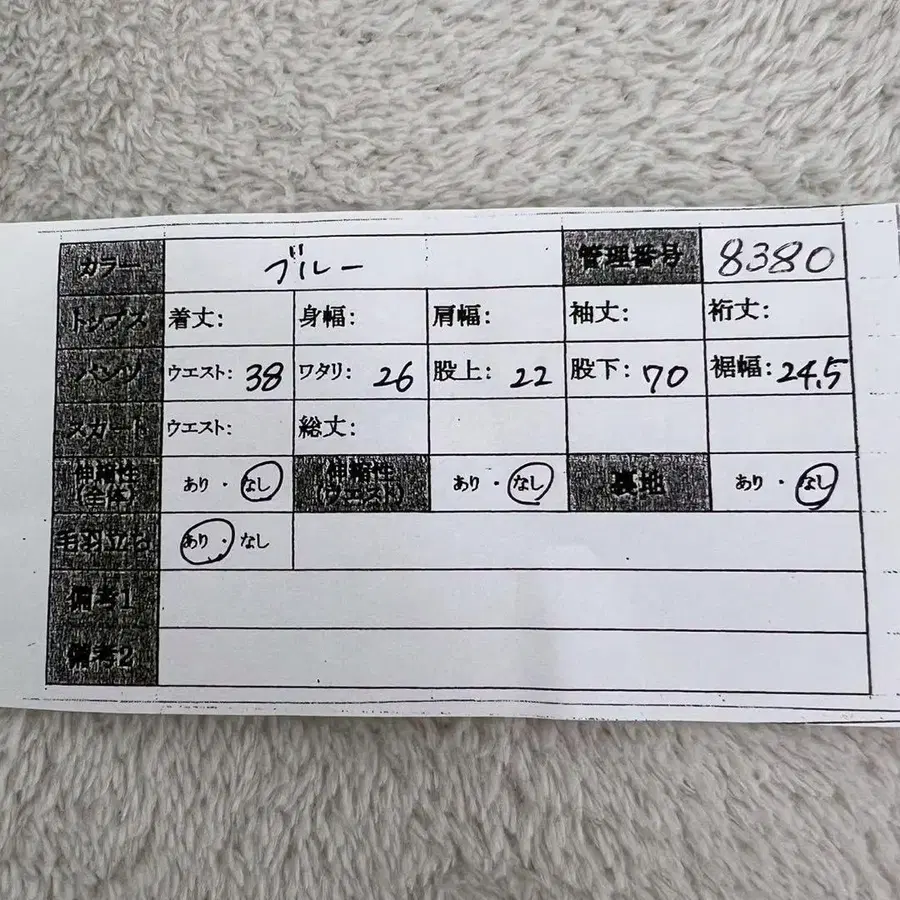 カラー ブルー 管理番号 8380
トップス 着丈: 身幅: 肩幅: 袖丈: 裄丈:
パンツ ウエスト: 38 ワタリ: 26 股上: 22 股下: 70 裾幅: 24.5
スカート ウエスト: 総丈:
伸縮性(全体) あり・なし 伸縮性(ウエスト) あり・なし 裏地 あり・なし
毛羽立ち あり・なし
備考1
備考2